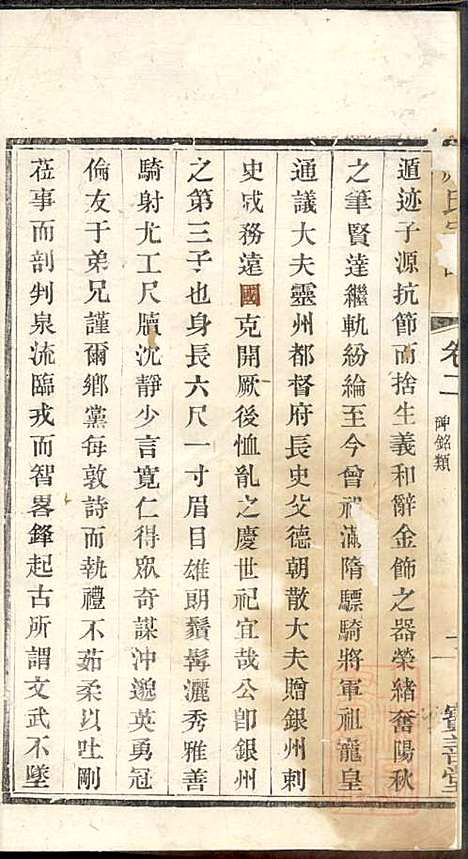 遁迹子源抗節而捨生義和辭金飾之器榮緒奮陽秋
之筆賢達繼軌紛綸至今曾祖瀛隋驃騎將軍祖龍皇
通議大夫靈州都督府長史父德朝散大夫贈銀州刺
史成務遠國克開厥後恤亂之慶世祀宜哉公卽銀州
之第三子也身長六尺一寸眉目雄朗鬚髯灑秀雅善
騎射尤工尺牘沈靜少言寬仁得眾奇謀沖邈英勇冠
倫友于弟兄謹爾鄉黨每敦詩而執禮不茹柔以吐剛
莅事而剖判泉流臨戎而智畧鋒起古所謂文武不墜
氏宗
卷二
碑銘類
寶善堂